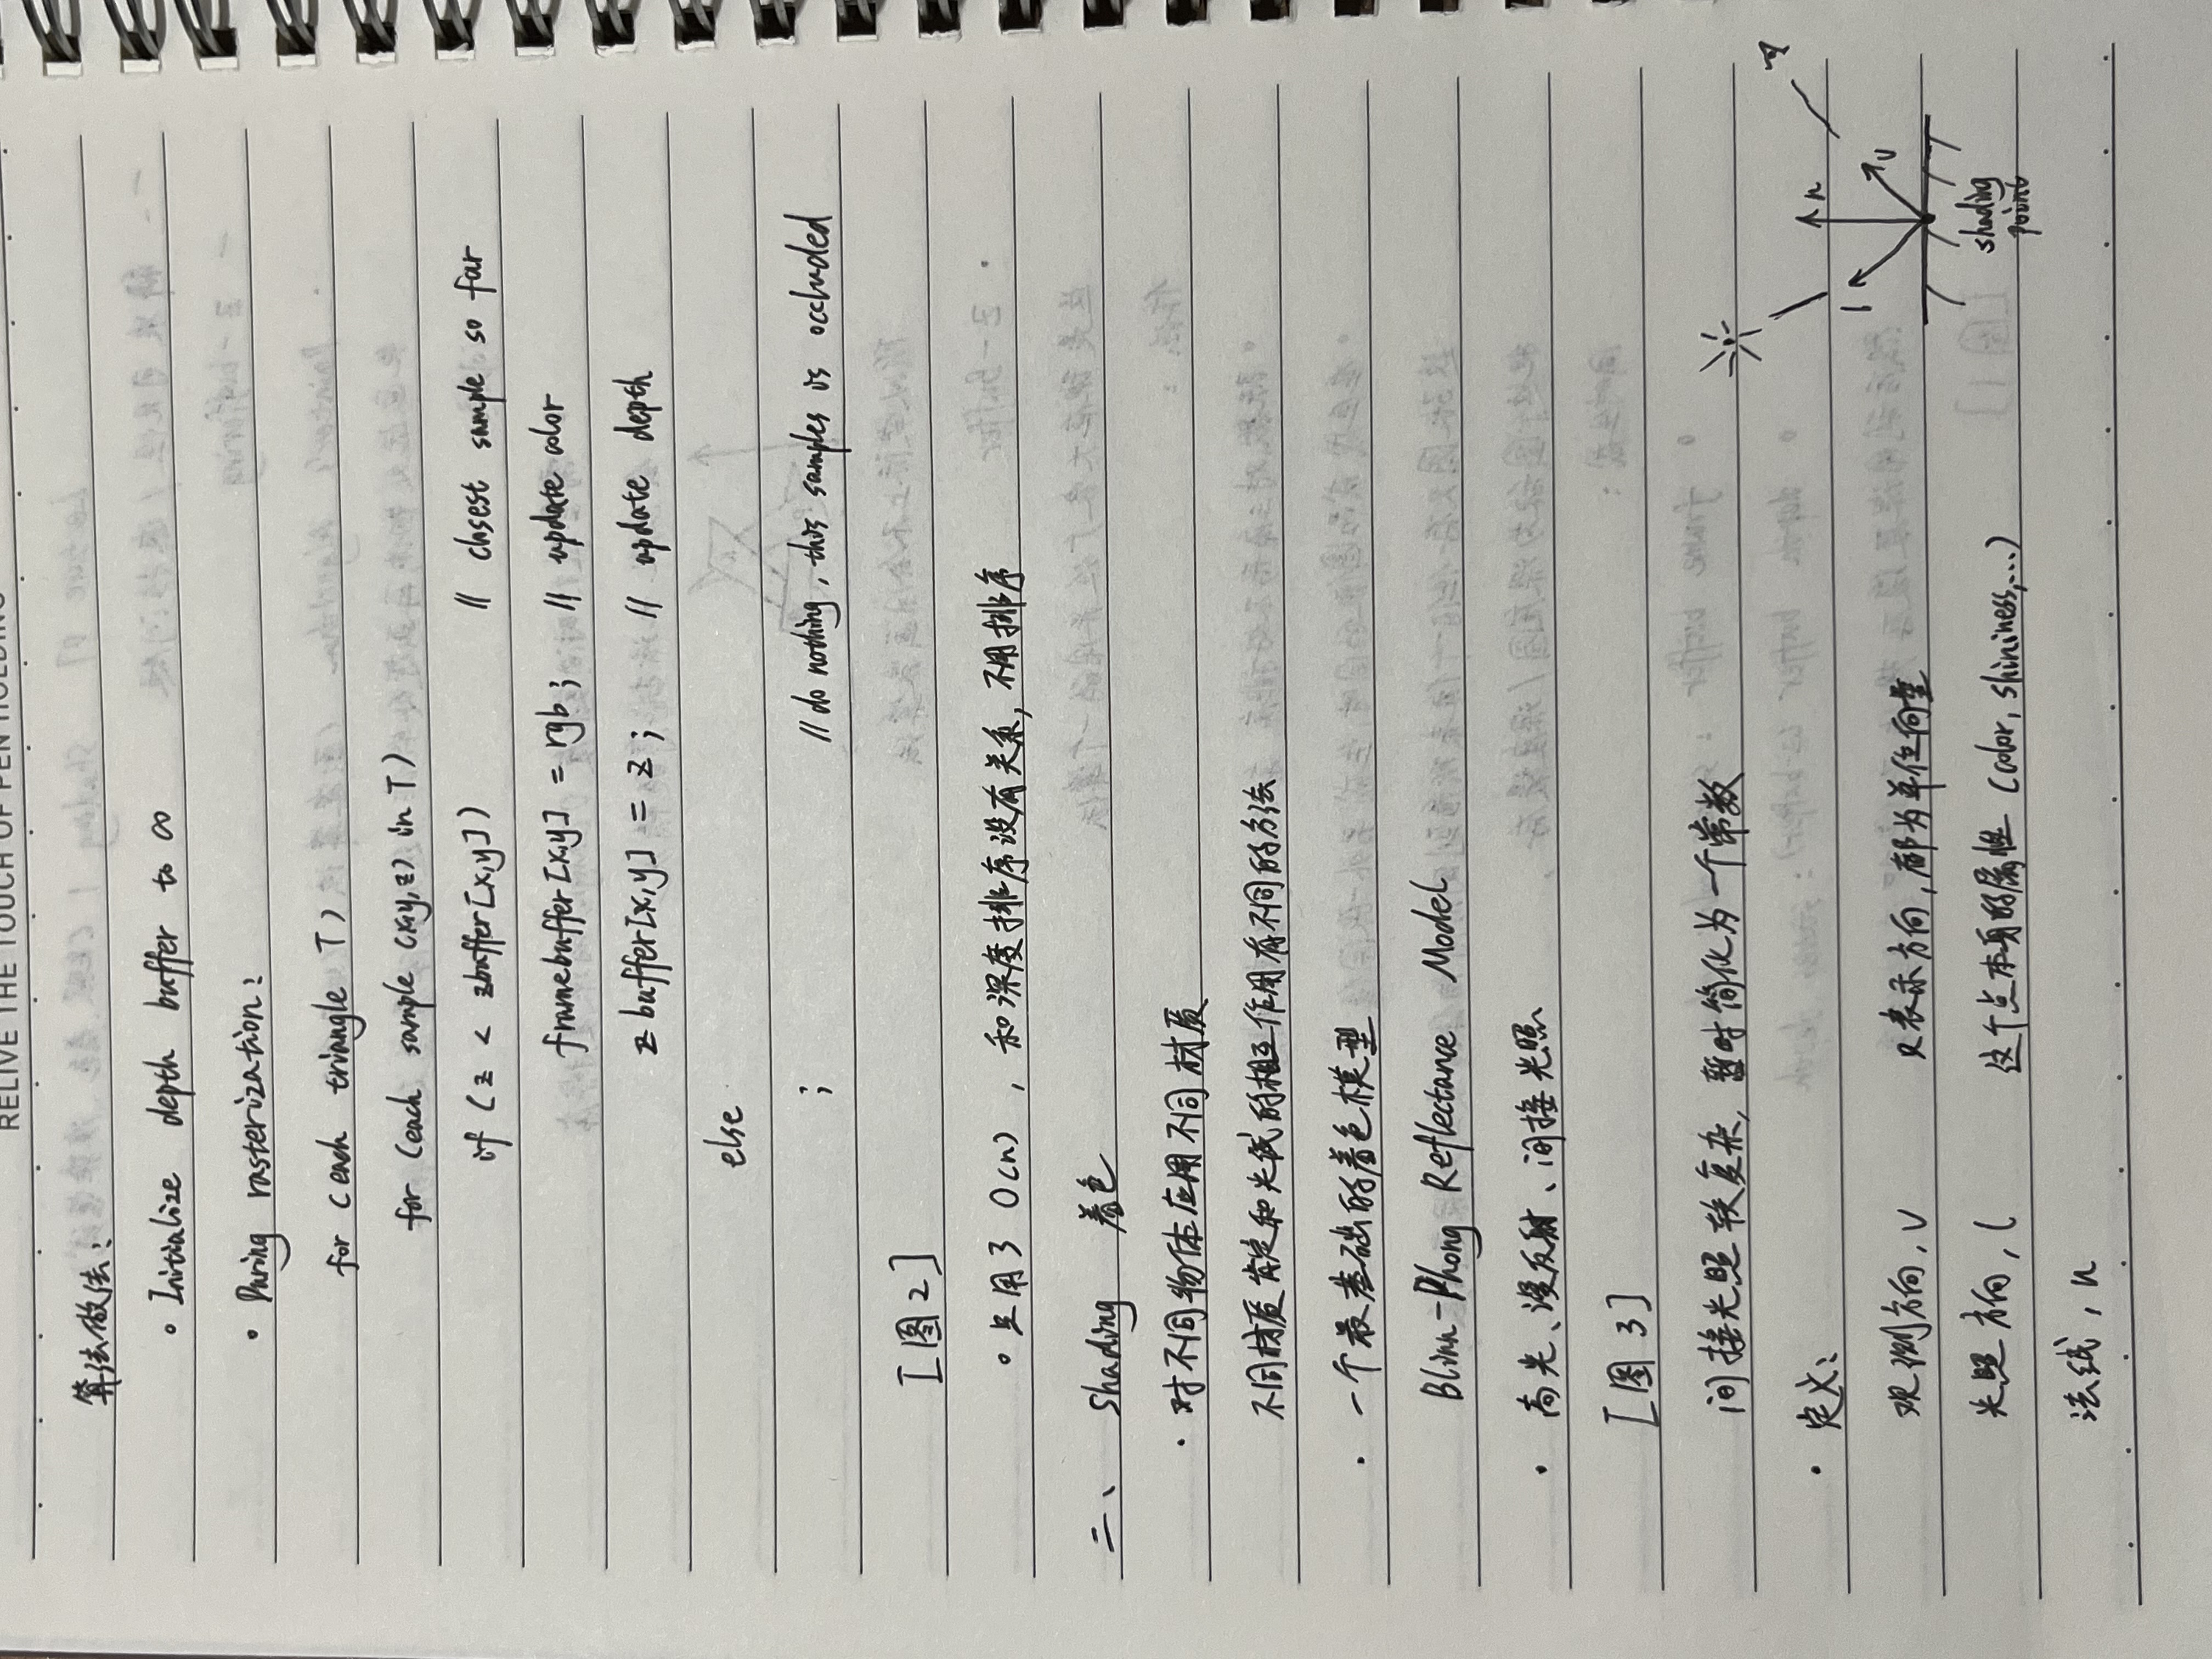 RELIVE THE TOUCH OF PEN HOLDING
算法做法：
• Initialize depth buffer to ∞
• During rasterization:
for (each triangle T)
for (each sample (x,y,z) in T)
if (z < zbuffer[x,y]) // closest sample so far
framebuffer[x,y] = rgb; // update color
zbuffer[x,y] = z; // update depth
else
; // do nothing, this samples is occluded
[图2]
• 只用了 O(n)，和深度排序没有关系，不用排序
二、 Shading 着色
· 对不同物体应用不同材质
不同材质肯定和光线的相互作用有不同的方法
· 一个最基础的着色模型
Blinn-Phong Reflectance Model
· 高光、漫反射、间接光照
[图3]
间接光照较复杂，暂时简化为一个常数
· 定义：
观测方向，v 只表示方向，都为单位向量
光照方向，l 这个点本身的属性 (color, shininess,...)
法线，n
n
l
v
shading
point